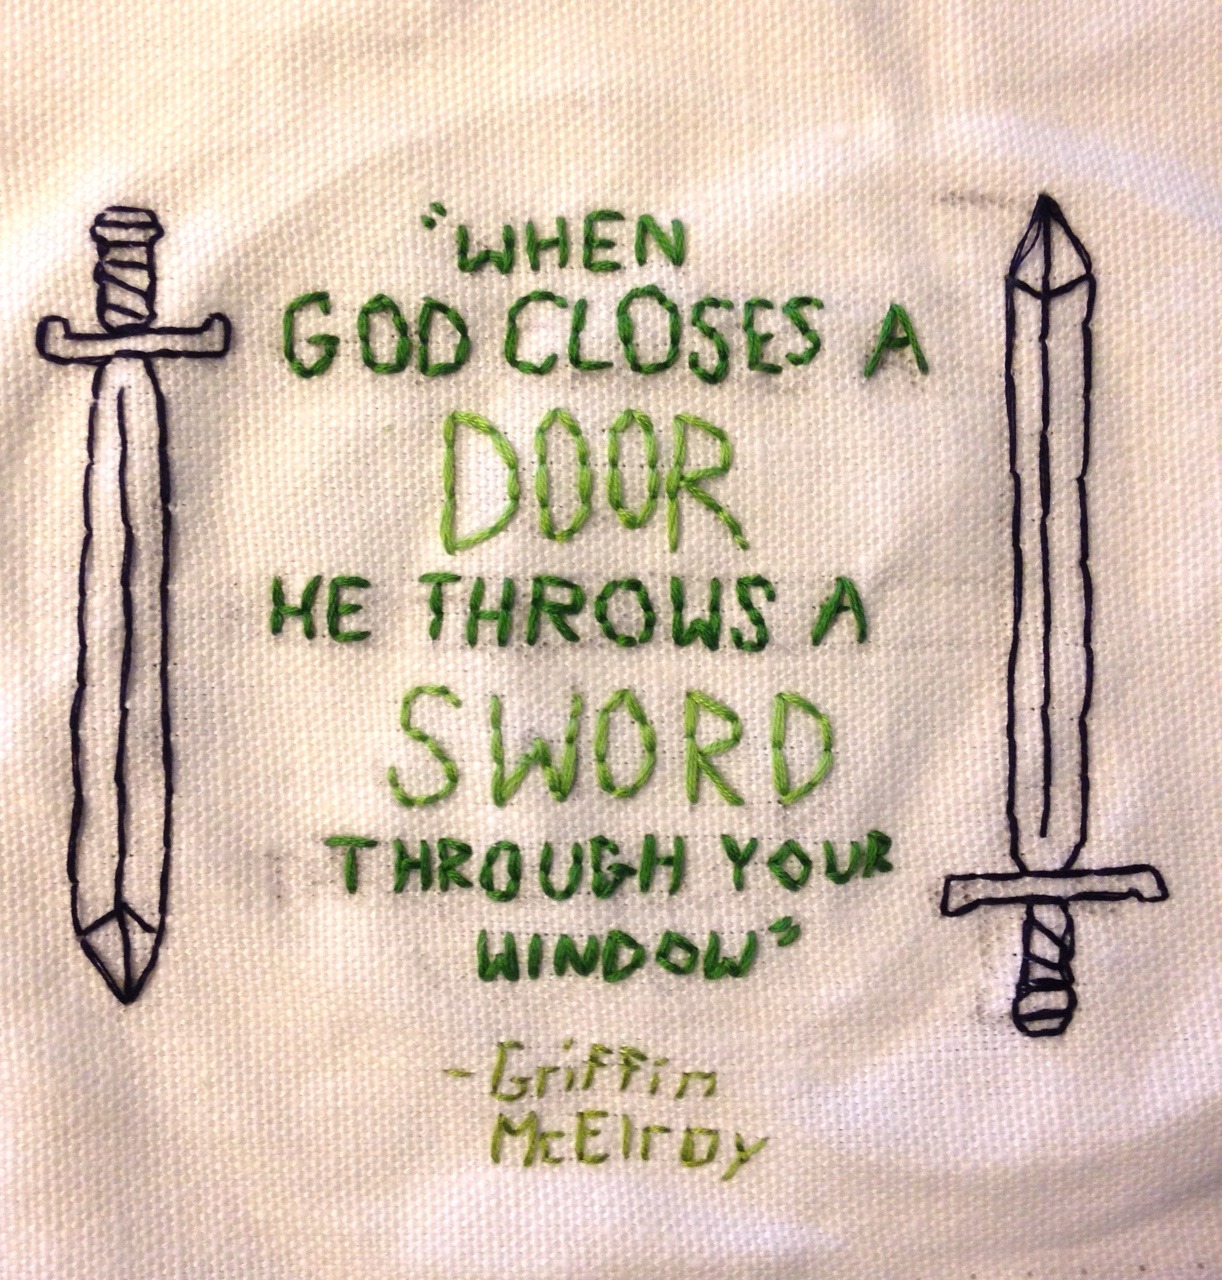 "WHEN
GOD CLOSES A
DOOR
HE THROWS A
SWORD
THROUGH YOUR
WINDOW"
-Griffin
McElroy